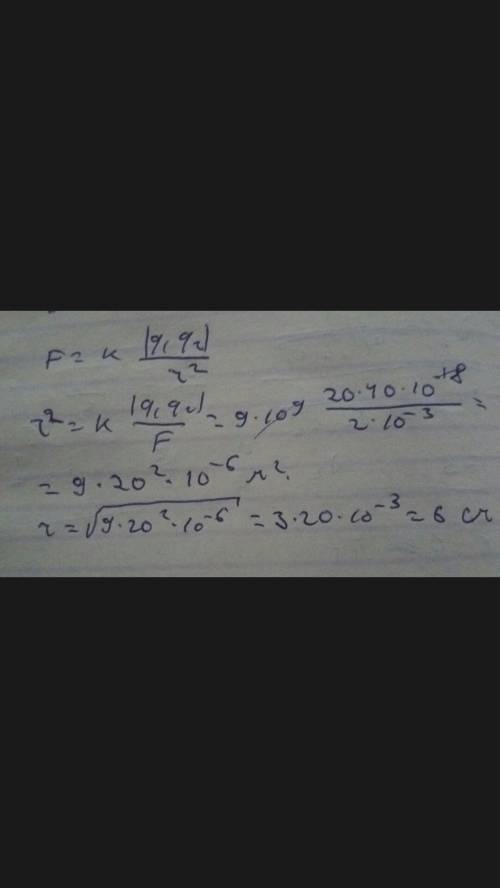 F = к |q₁ q₂| / r²
r² = к |q₁ q₂| / F = 9·10⁹ 20·40·10⁻¹⁸ / 2·10⁻³ =
= 9·20²·10⁻⁶ м².
r = √9·20²·10⁻⁶ = 3·20·10⁻³ = 6 см